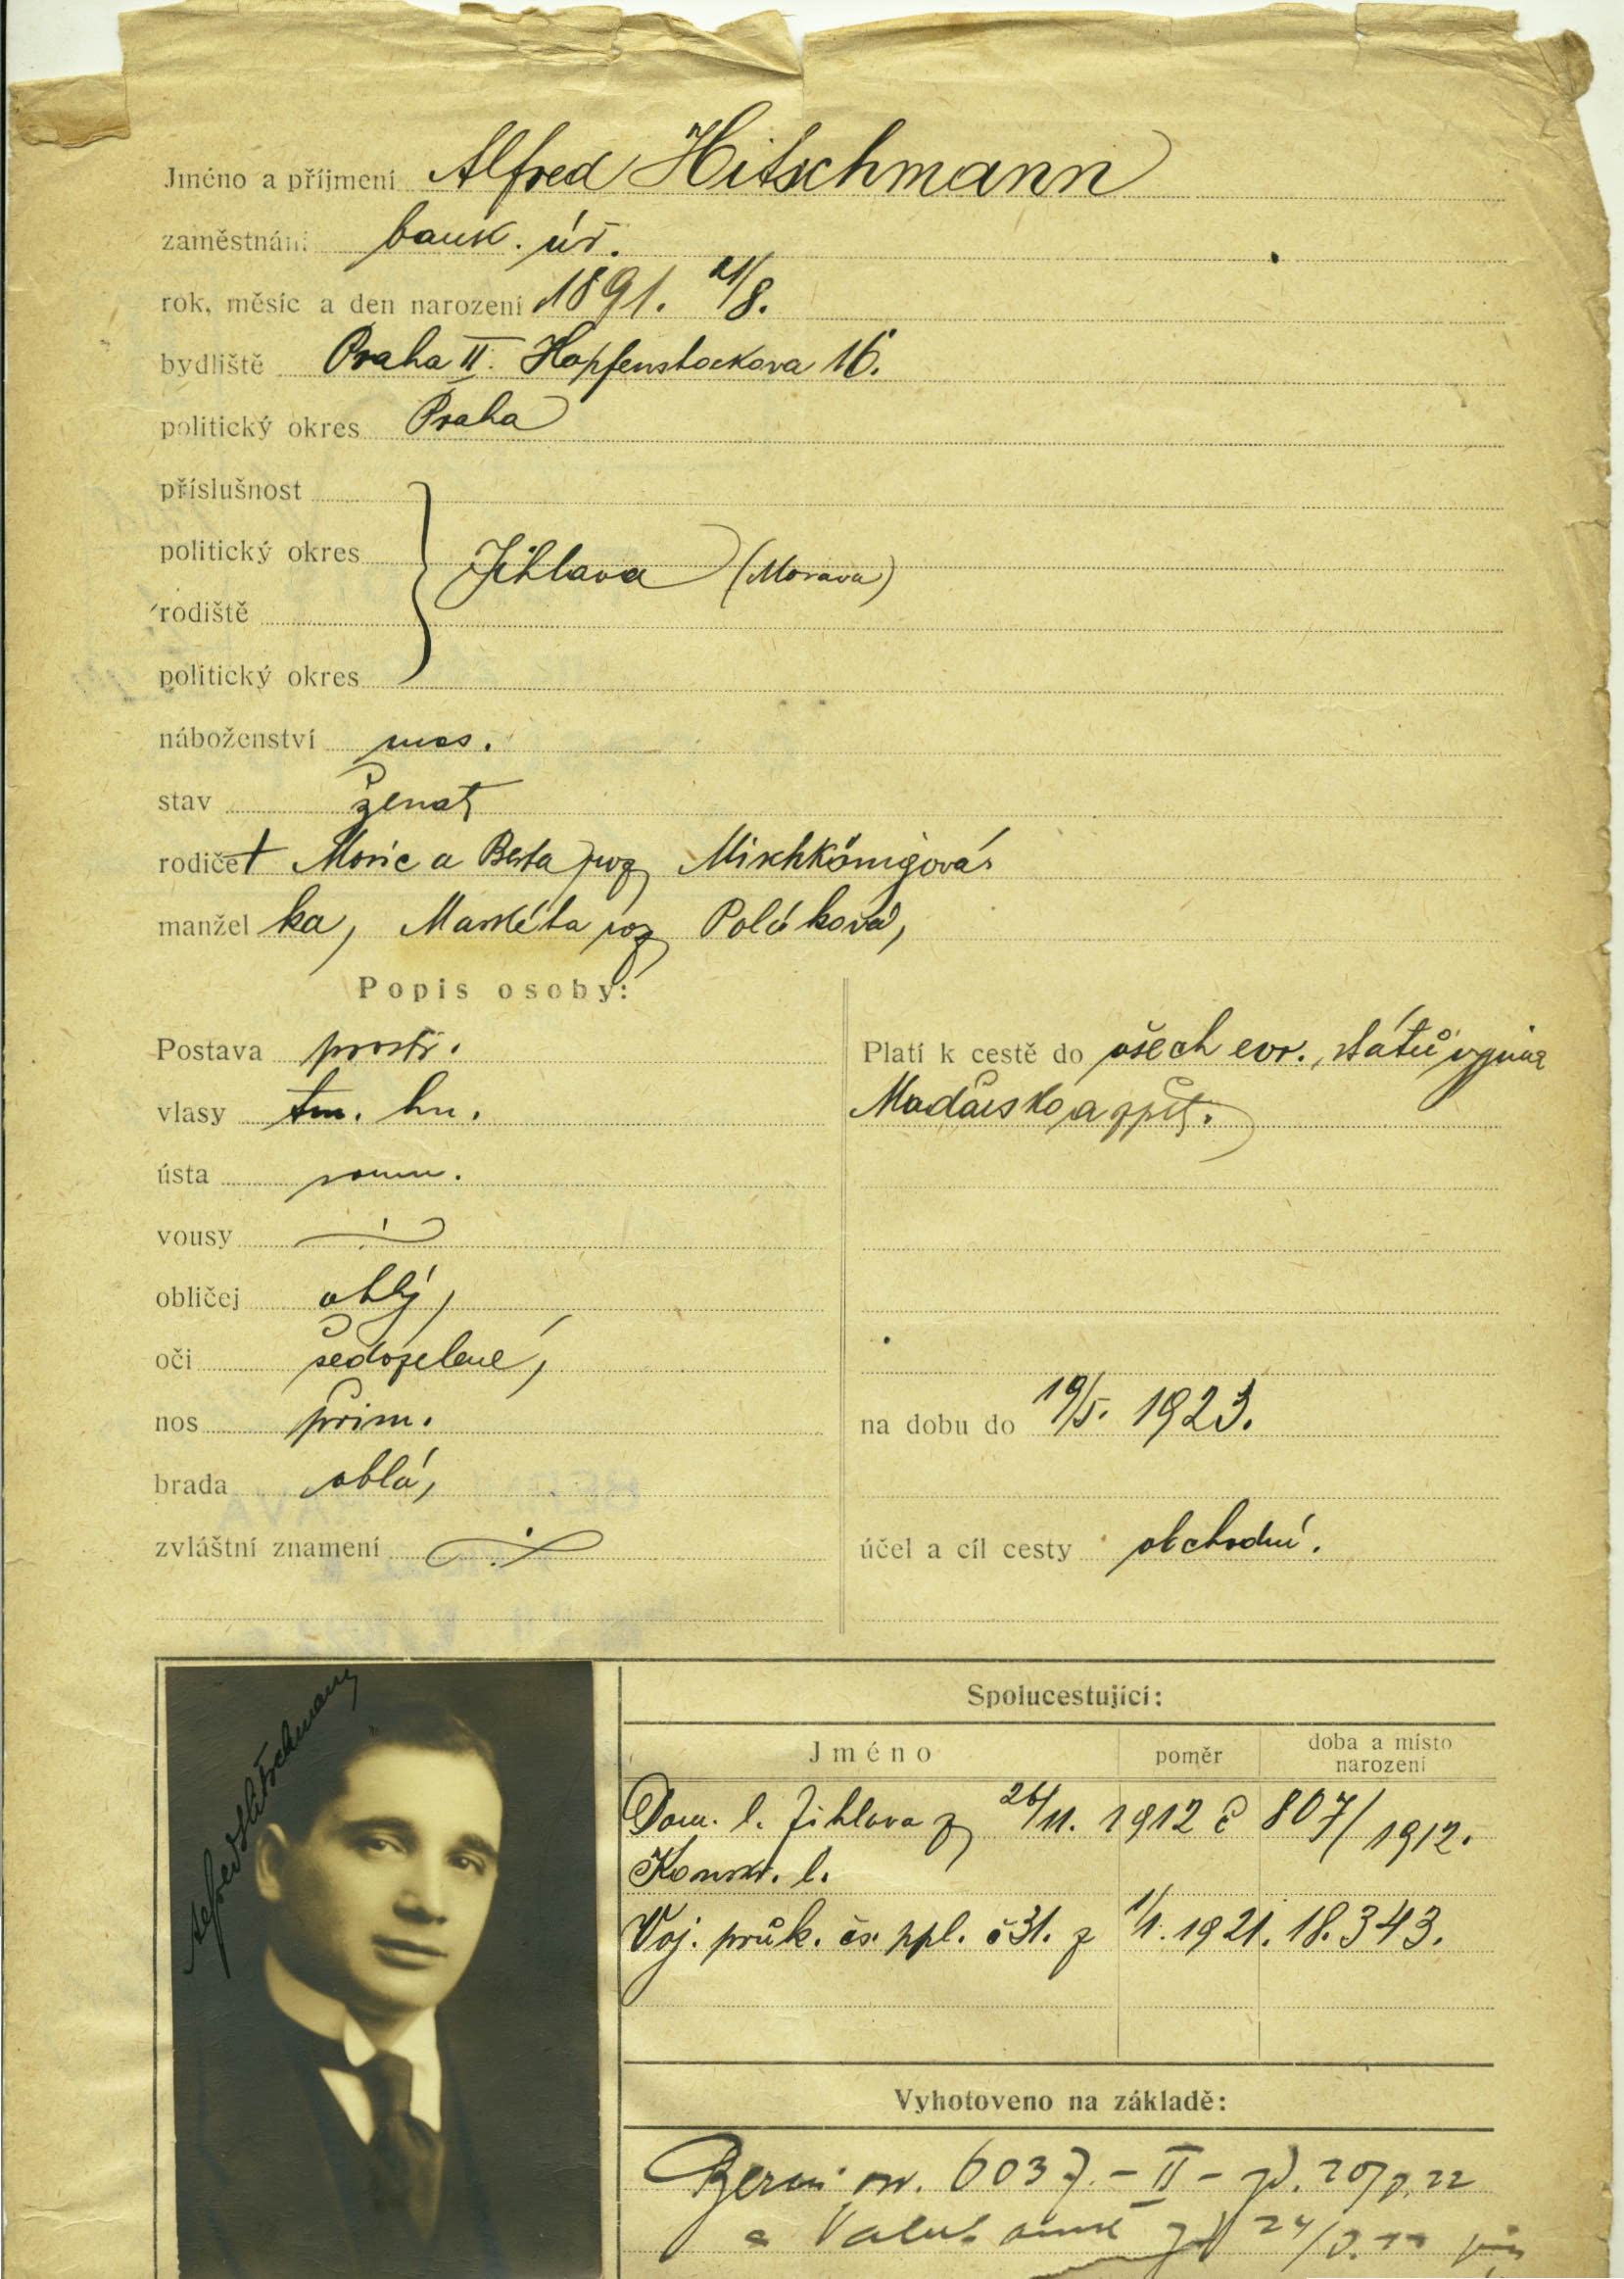 Jméno a příjmení Alfred Hitschmann
zaměstnání bank. úř.
rok, měsíc a den narození 1891. 21/8.
bydliště Praha II. Hopfenstockova 16.
politický okres Praha
příslušnost
politický okres
Jihlava (Morava)
rodiště
politický okres
náboženství mos.
stav ženat
rodiče † Moric a Berta roz Mischkönigová
manžel ka, Markéta roz Poláková,
Popis osoby:
Postava prostř.
vlasy tm. hn.
ústa soum.
vousy
obličej oblý,
oči šedozelené,
nos přim.
brada oblá,
zvláštní znamení
Platí k cestě do všech evr. států vyjma
Maďarsko a zpět.
na dobu do 19/5. 1923.
účel a cíl cesty obchodní.
Alfred Hitschmann
Spolucestující:
Jméno poměr doba a místo narození
Dom. l. Jihlava z 26/11. 1912 č 807/1912.
Konskr. l.
Voj. průk. čs. ppl. č 31. z 1/1. 1921. 18.343.
Vyhotoveno na základě:
Berní 6037 - II -
a